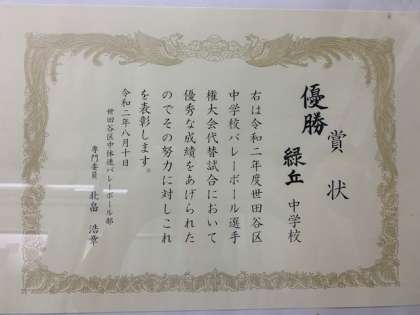 賞状
優勝
緑丘中学校
右は令和二年度世田谷区
中学校バレーボール選手
権大会代替試合において
優秀な成績をあげられた
のでその努力に対しこれ
を表彰します。
令和二年八月十日
世田谷区中体連バレーボール部
専門委員 北畠 浩章